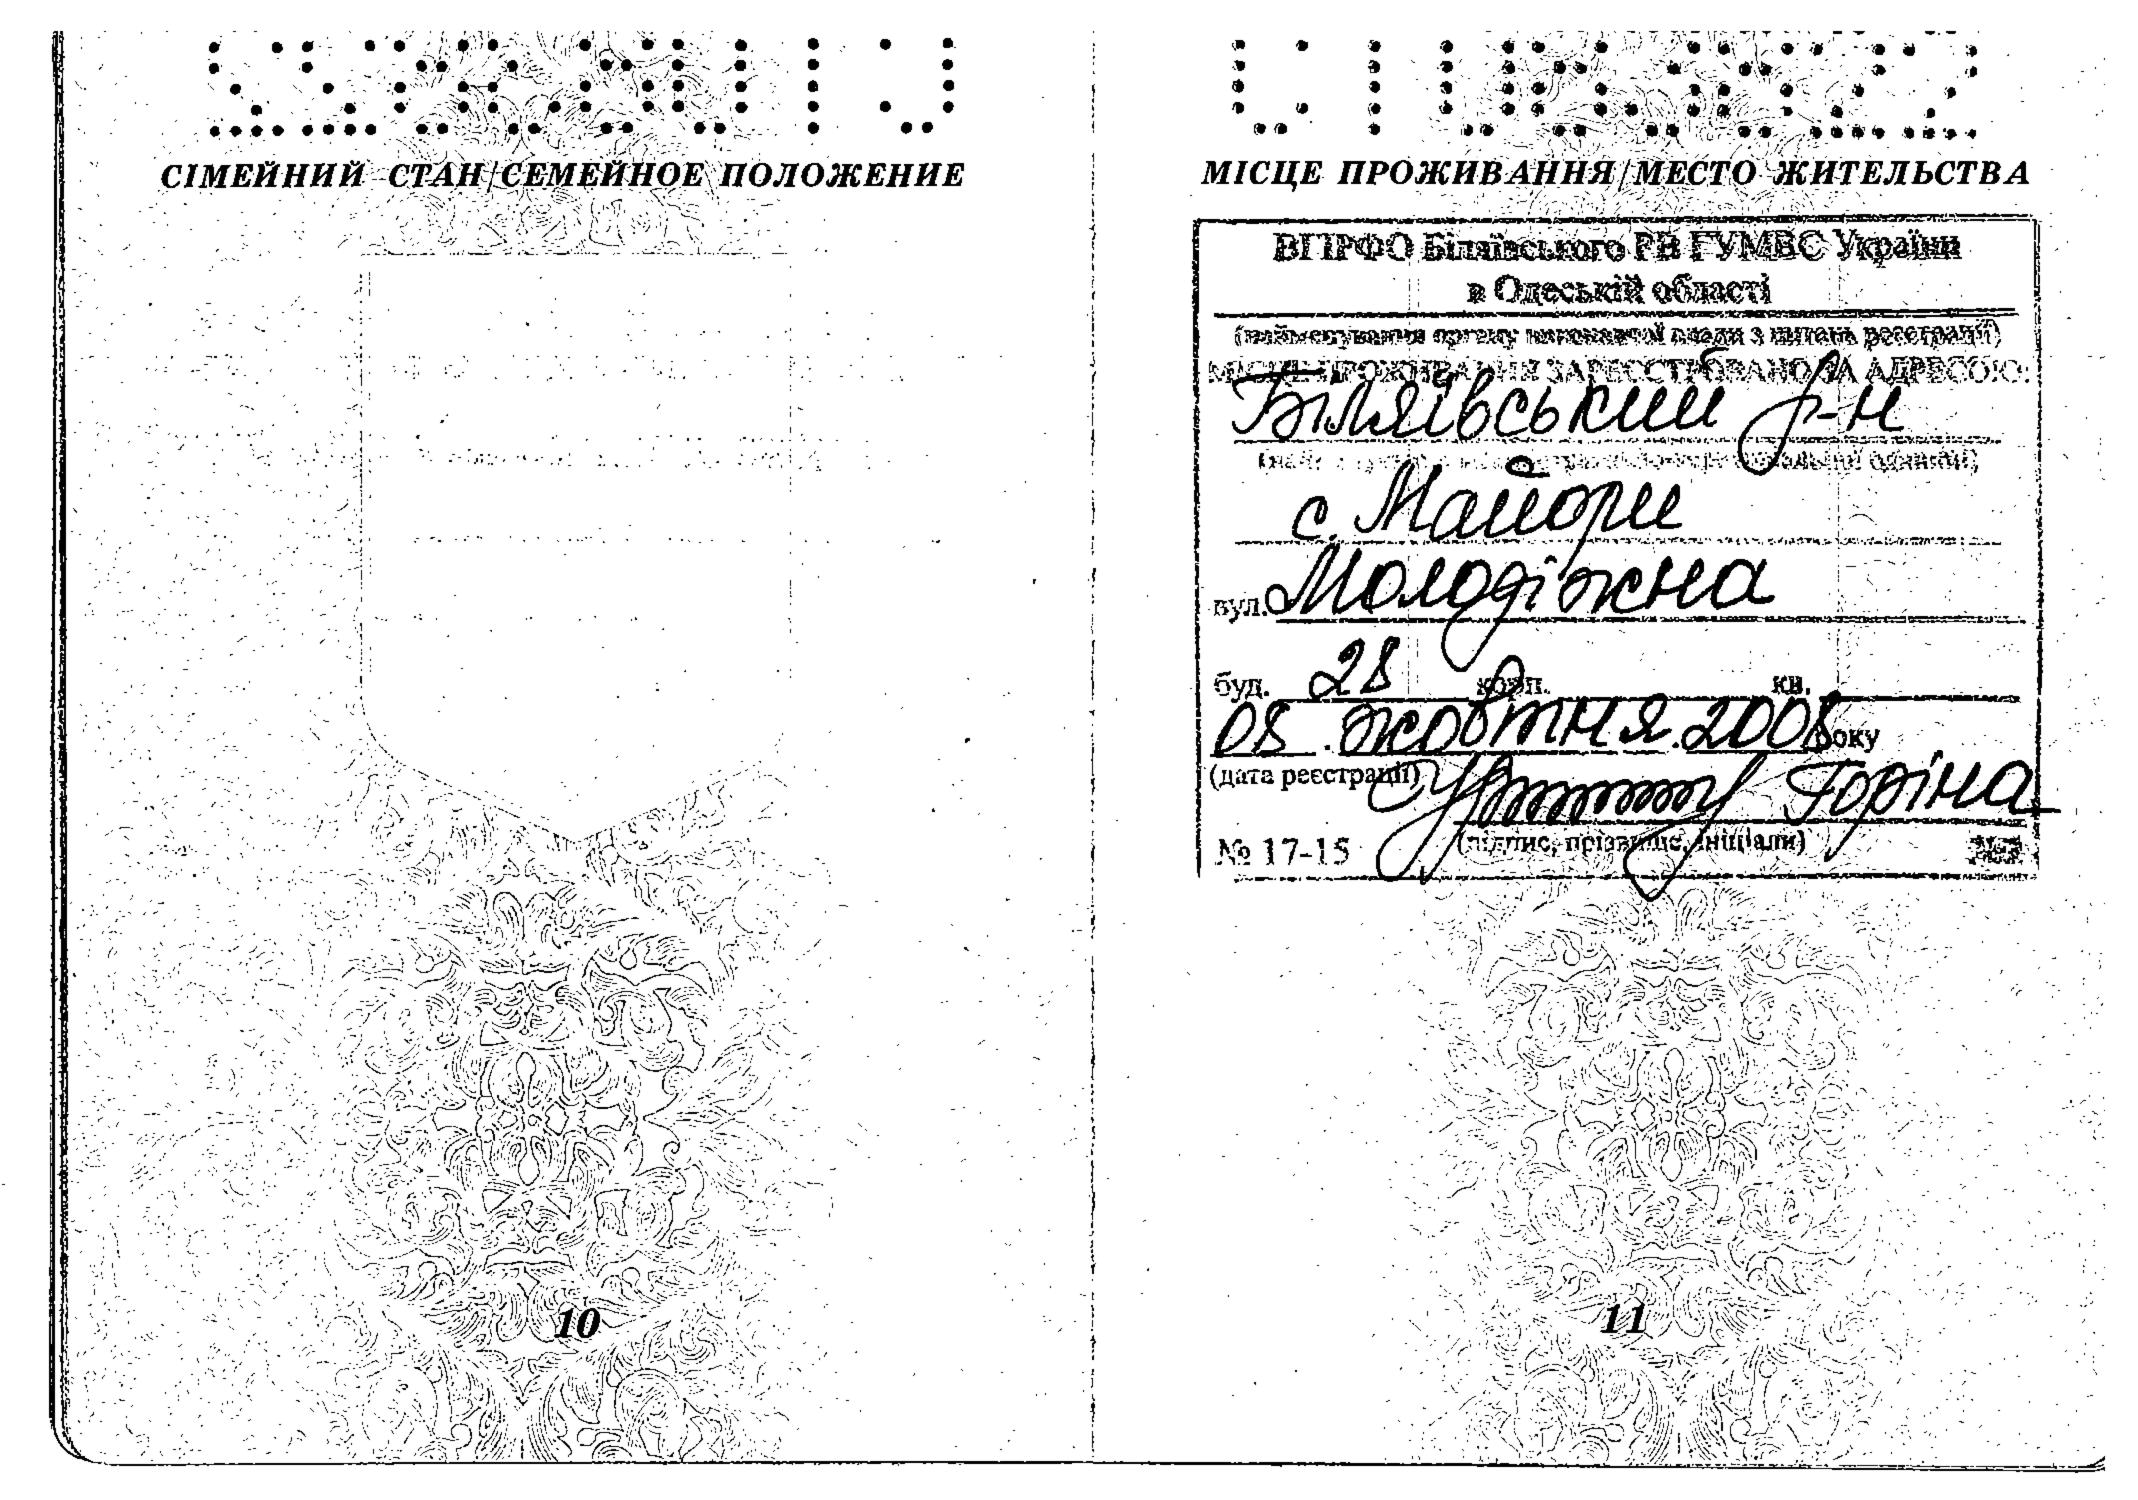 СІМЕЙНИЙ СТАН/СЕМЕЙНОЕ ПОЛОЖЕНИЕ
10
МІСЦЕ ПРОЖИВАННЯ/МЕСТО ЖИТЕЛЬСТВА
ВГІРФО Біляївського РВ ГУМВС України
в Одеській області
(найменування органу виконавчої влади з питань реєстрації)
МІСЦЕ ПРОЖИВАННЯ ЗАРЕЄСТРОВАНО ЗА АДРЕСОЮ:
Біляївський р-н
с. Майори
вул. Молодіжна
буд. 28 корп. кв.
08 . жовтня . 2008 року
(дата реєстрації) Горіна
№ 17-15 (підпис, прізвище, ініціали)
11